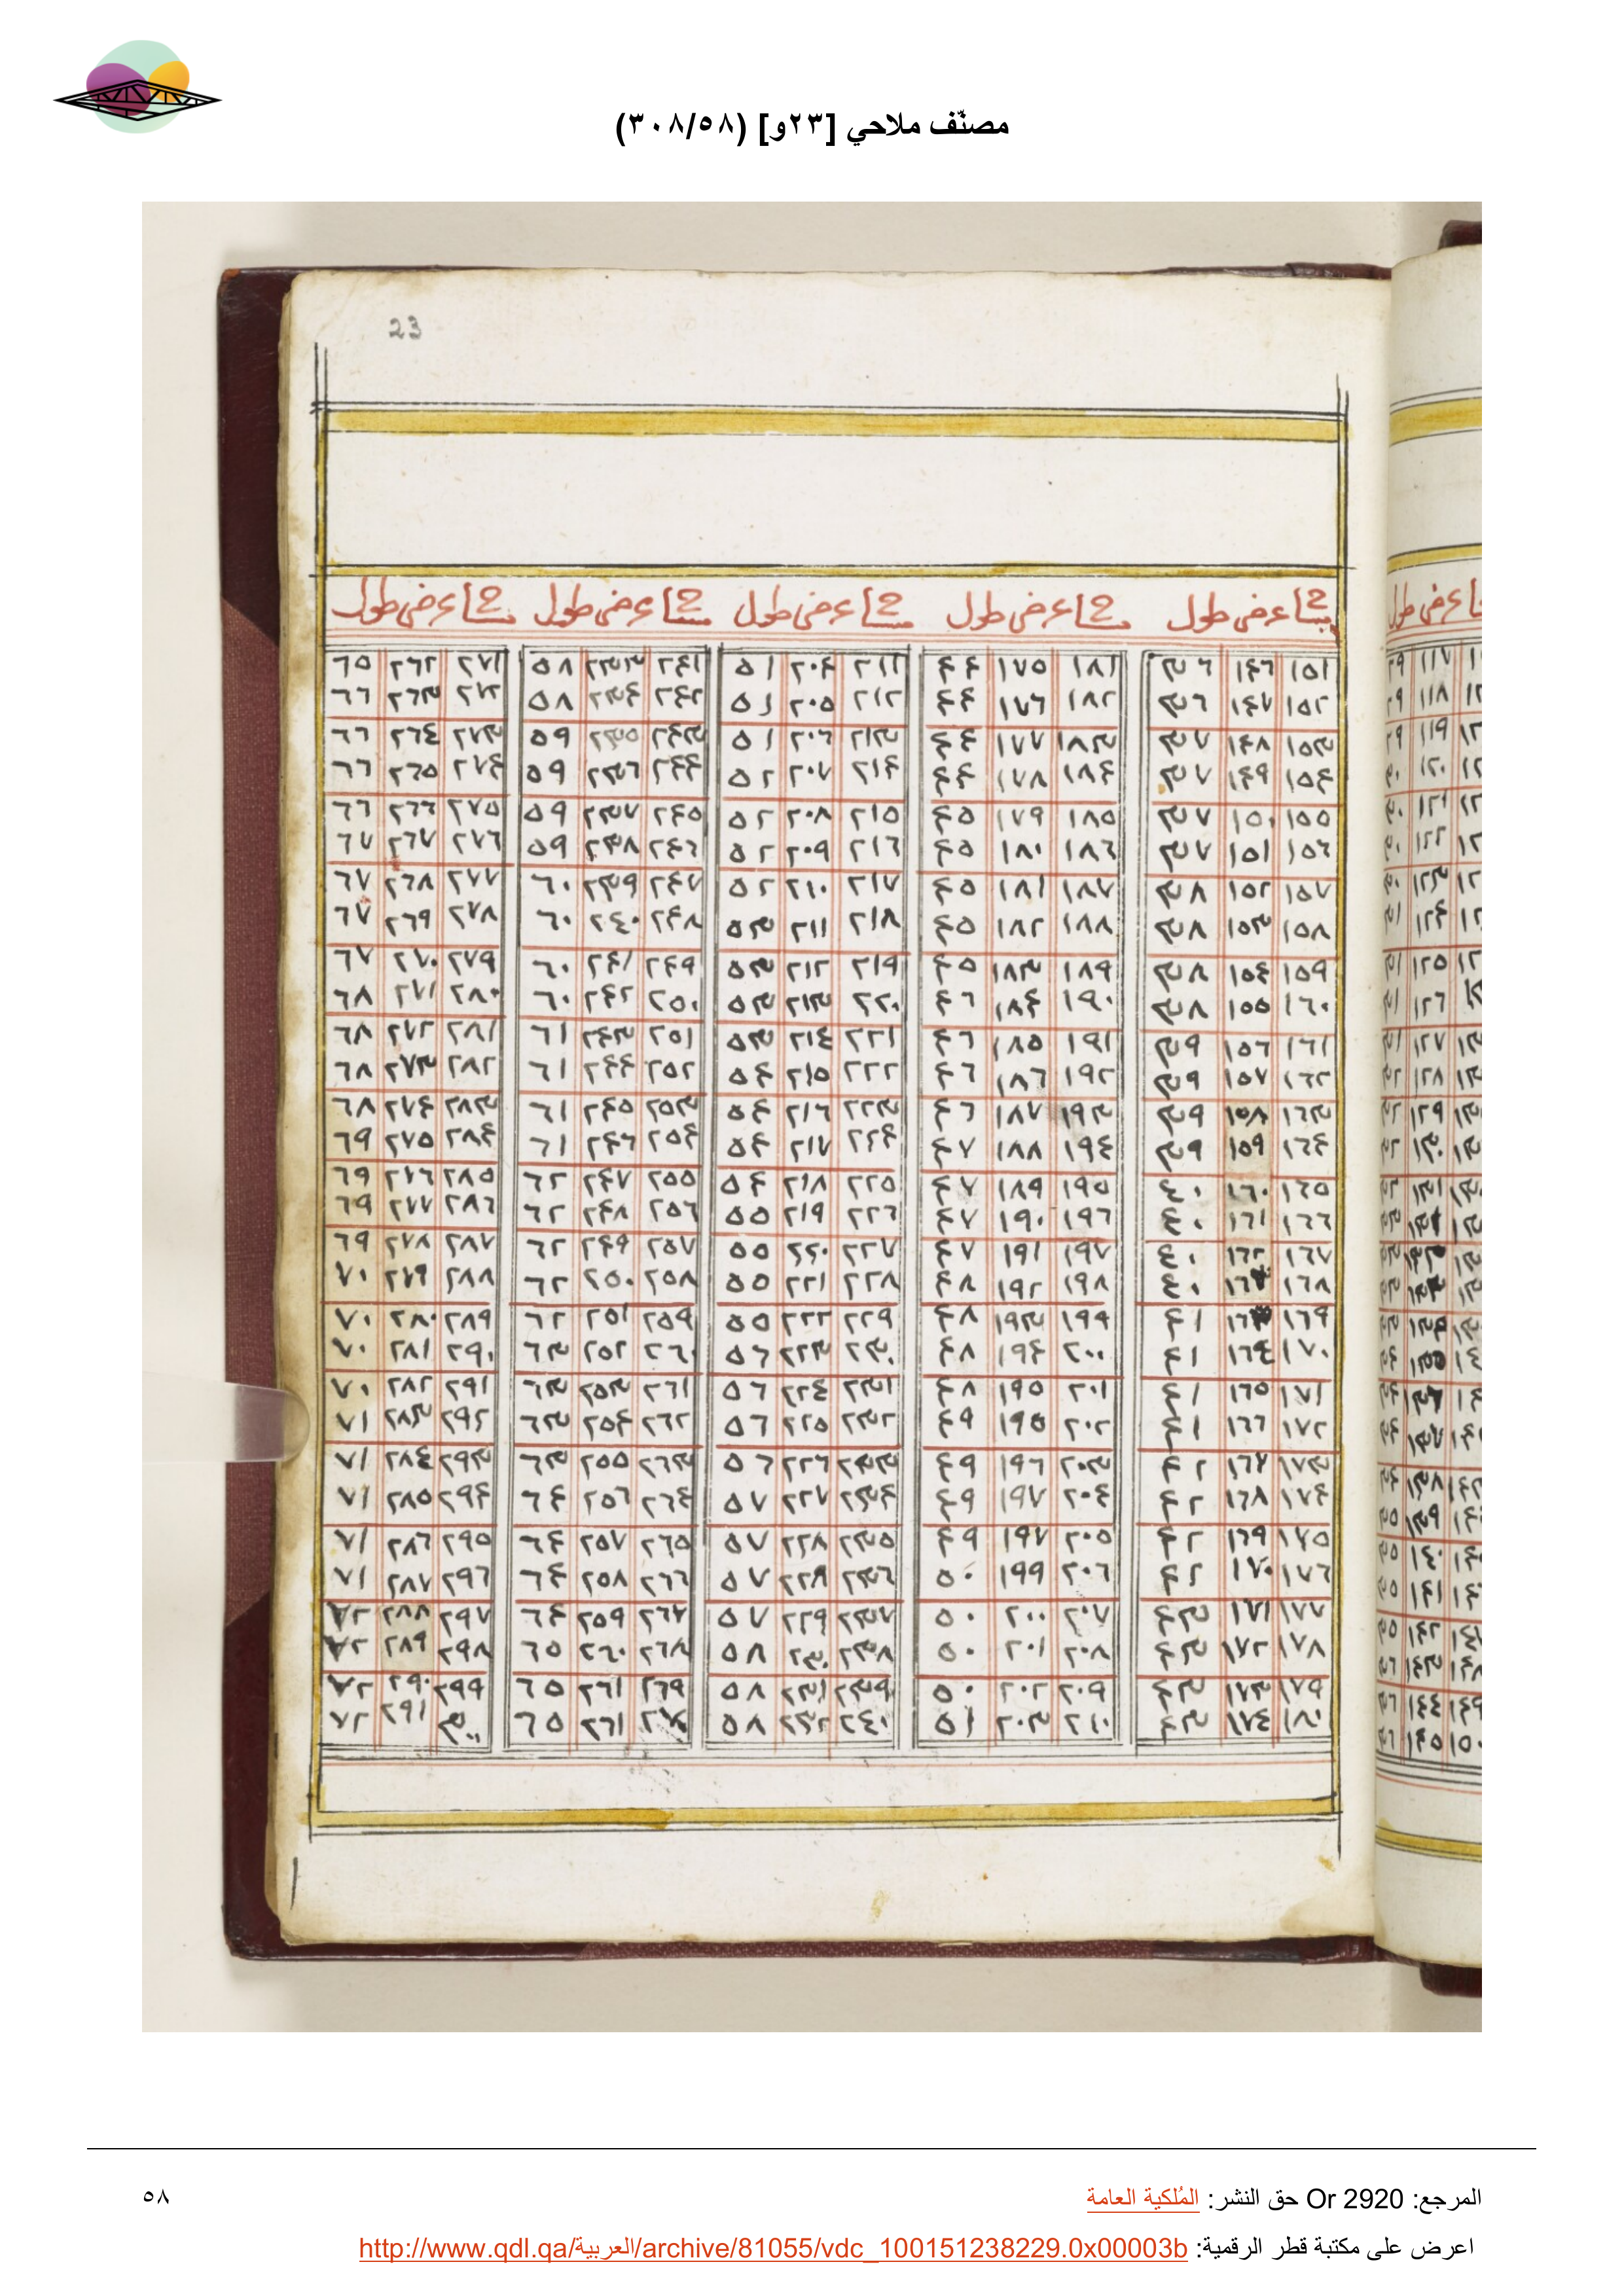 مصنّف ملاحي [٢٣و] (٣٠٨/٥٨)
23
مسا عرض طول مسا عرض طول مسا عرض طول مسا عرض طول مسا عرض طول
١٥١ ١٤٦ ٣٦ ١٨١ ١٧٥ ٤٤ ٢١١ ٢٠٤ ٥١ ٢٤١ ٢٣٣ ٥٨ ٢٧١ ٢٦٢ ٦٥
١٥٢ ١٤٧ ٣٦ ١٨٢ ١٧٦ ٤٤ ٢١٢ ٢٠٥ ٥١ ٢٤٢ ٢٣٤ ٥٨ ٢٧٢ ٢٦٣ ٦٦
١٥٣ ١٤٨ ٣٧ ١٨٣ ١٧٧ ٤٤ ٢١٣ ٢٠٦ ٥١ ٢٤٣ ٢٣٥ ٥٩ ٢٧٣ ٢٦٤ ٦٦
١٥٤ ١٤٩ ٣٧ ١٨٤ ١٧٨ ٤٤ ٢١٤ ٢٠٧ ٥٢ ٢٤٤ ٢٣٦ ٥٩ ٢٧٤ ٢٦٥ ٦٦
١٥٥ ١٥٠ ٣٧ ١٨٥ ١٧٩ ٤٥ ٢١٥ ٢٠٨ ٥٢ ٢٤٥ ٢٣٧ ٥٩ ٢٧٥ ٢٦٦ ٦٦
١٥٦ ١٥١ ٣٧ ١٨٦ ١٨٠ ٤٥ ٢١٦ ٢٠٩ ٥٢ ٢٤٦ ٢٣٨ ٥٩ ٢٧٦ ٢٦٧ ٦٧
١٥٧ ١٥٢ ٣٨ ١٨٧ ١٨١ ٤٥ ٢١٧ ٢١٠ ٥٢ ٢٤٧ ٢٣٩ ٦٠ ٢٧٧ ٢٦٨ ٦٧
١٥٨ ١٥٣ ٣٨ ١٨٨ ١٨٢ ٤٥ ٢١٨ ٢١١ ٥٣ ٢٤٨ ٢٤٠ ٦٠ ٢٧٨ ٢٦٩ ٦٧
١٥٩ ١٥٤ ٣٨ ١٨٩ ١٨٣ ٤٥ ٢١٩ ٢١٢ ٥٣ ٢٤٩ ٢٤١ ٦٠ ٢٧٩ ٢٧٠ ٦٧
١٦٠ ١٥٥ ٣٨ ١٩٠ ١٨٤ ٤٦ ٢٢٠ ٢١٣ ٥٣ ٢٥٠ ٢٤٢ ٦٠ ٢٨٠ ٢٧١ ٦٨
١٦١ ١٥٦ ٣٩ ١٩١ ١٨٥ ٤٦ ٢٢١ ٢١٤ ٥٣ ٢٥١ ٢٤٣ ٦١ ٢٨١ ٢٧٢ ٦٨
١٦٢ ١٥٧ ٣٩ ١٩٢ ١٨٦ ٤٦ ٢٢٢ ٢١٥ ٥٤ ٢٥٢ ٢٤٤ ٦١ ٢٨٢ ٢٧٣ ٦٨
١٦٣ ١٥٨ ٣٩ ١٩٣ ١٨٧ ٤٦ ٢٢٣ ٢١٦ ٥٤ ٢٥٣ ٢٤٥ ٦١ ٢٨٣ ٢٧٤ ٦٨
١٦٤ ١٥٩ ٣٩ ١٩٤ ١٨٨ ٤٧ ٢٢٤ ٢١٧ ٥٤ ٢٥٤ ٢٤٦ ٦١ ٢٨٤ ٢٧٥ ٦٩
١٦٥ ١٦٠ ٤٠ ١٩٥ ١٨٩ ٤٧ ٢٢٥ ٢١٨ ٥٤ ٢٥٥ ٢٤٧ ٦٢ ٢٨٥ ٢٧٦ ٦٩
١٦٦ ١٦١ ٤٠ ١٩٦ ١٩٠ ٤٧ ٢٢٦ ٢١٩ ٥٥ ٢٥٦ ٢٤٨ ٦٢ ٢٨٦ ٢٧٧ ٦٩
١٦٧ ١٦٢ ٤٠ ١٩٧ ١٩١ ٤٧ ٢٢٧ ٢٢٠ ٥٥ ٢٥٧ ٢٤٩ ٦٢ ٢٨٧ ٢٧٨ ٦٩
١٦٨ ٤٠ ١٩٨ ١٩٢ ٤٨ ٢٢٨ ٢٢١ ٥٥ ٢٥٨ ٢٥٠ ٦٢ ٢٨٨ ٢٧٩ ٧٠
١٦٩ ٤١ ١٩٩ ١٩٣ ٤٨ ٢٢٩ ٢٢٢ ٥٥ ٢٥٩ ٢٥١ ٦٢ ٢٨٩ ٢٨٠ ٧٠
١٧٠ ١٦٤ ٤١ ٢٠٠ ١٩٤ ٤٨ ٢٣٠ ٢٢٣ ٥٦ ٢٦٠ ٢٥٢ ٦٣ ٢٩٠ ٢٨١ ٧٠
١٧١ ١٦٥ ٤١ ٢٠١ ١٩٥ ٤٨ ٢٣١ ٢٢٤ ٥٦ ٢٦١ ٢٥٣ ٦٣ ٢٩١ ٢٨٢ ٧٠
١٧٢ ١٦٦ ٤١ ٢٠٢ ١٩٥ ٤٩ ٢٣٢ ٢٢٥ ٥٦ ٢٦٢ ٢٥٤ ٦٣ ٢٩٢ ٢٨٣ ٧١
١٧٣ ١٦٧ ٤٢ ٢٠٣ ١٩٦ ٤٩ ٢٣٣ ٢٢٦ ٥٦ ٢٦٣ ٢٥٥ ٦٣ ٢٩٣ ٢٨٤ ٧١
١٧٤ ١٦٨ ٤٢ ٢٠٤ ١٩٧ ٤٩ ٢٣٤ ٢٢٧ ٥٧ ٢٦٤ ٢٥٦ ٦٤ ٢٩٤ ٢٨٥ ٧١
١٧٥ ١٦٩ ٤٢ ٢٠٥ ١٩٧ ٤٩ ٢٣٥ ٢٢٨ ٥٧ ٢٦٥ ٢٥٧ ٦٤ ٢٩٥ ٢٨٦ ٧١
١٧٦ ١٧٠ ٤٢ ٢٠٦ ١٩٩ ٥٠ ٢٣٦ ٢٢٨ ٥٧ ٢٦٦ ٢٥٨ ٦٤ ٢٩٦ ٢٨٧ ٧١
١٧٧ ١٧١ ٤٣ ٢٠٧ ٢٠٠ ٥٠ ٢٣٧ ٢٢٩ ٥٧ ٢٦٧ ٢٥٩ ٦٤ ٢٩٧ ٢٨٨ ٧٢
١٧٨ ١٧٢ ٤٣ ٢٠٨ ٢٠١ ٥٠ ٢٣٨ ٢٣٠ ٥٨ ٢٦٨ ٢٦٠ ٦٥ ٢٩٨ ٢٨٩ ٧٢
١٧٩ ١٧٣ ٤٣ ٢٠٩ ٢٠٢ ٥٠ ٢٣٩ ٢٣١ ٥٨ ٢٦٩ ٢٦١ ٦٥ ٢٩٩ ٢٩٠ ٧٢
١٨٠ ١٧٤ ٤٣ ٢١٠ ٢٠٣ ٥١ ٢٤٠ ٢٣٢ ٥٨ ٢٧٠ ٢٦١ ٦٥ ٣٠٠ ٢٩١ ٧٢
المرجع: Or 2920 حق النشر: المُلكية العامة
٥٨
اعرض على مكتبة قطر الرقمية: http://www.qdl.qa/العربية/archive/81055/vdc_100151238229.0x00003b